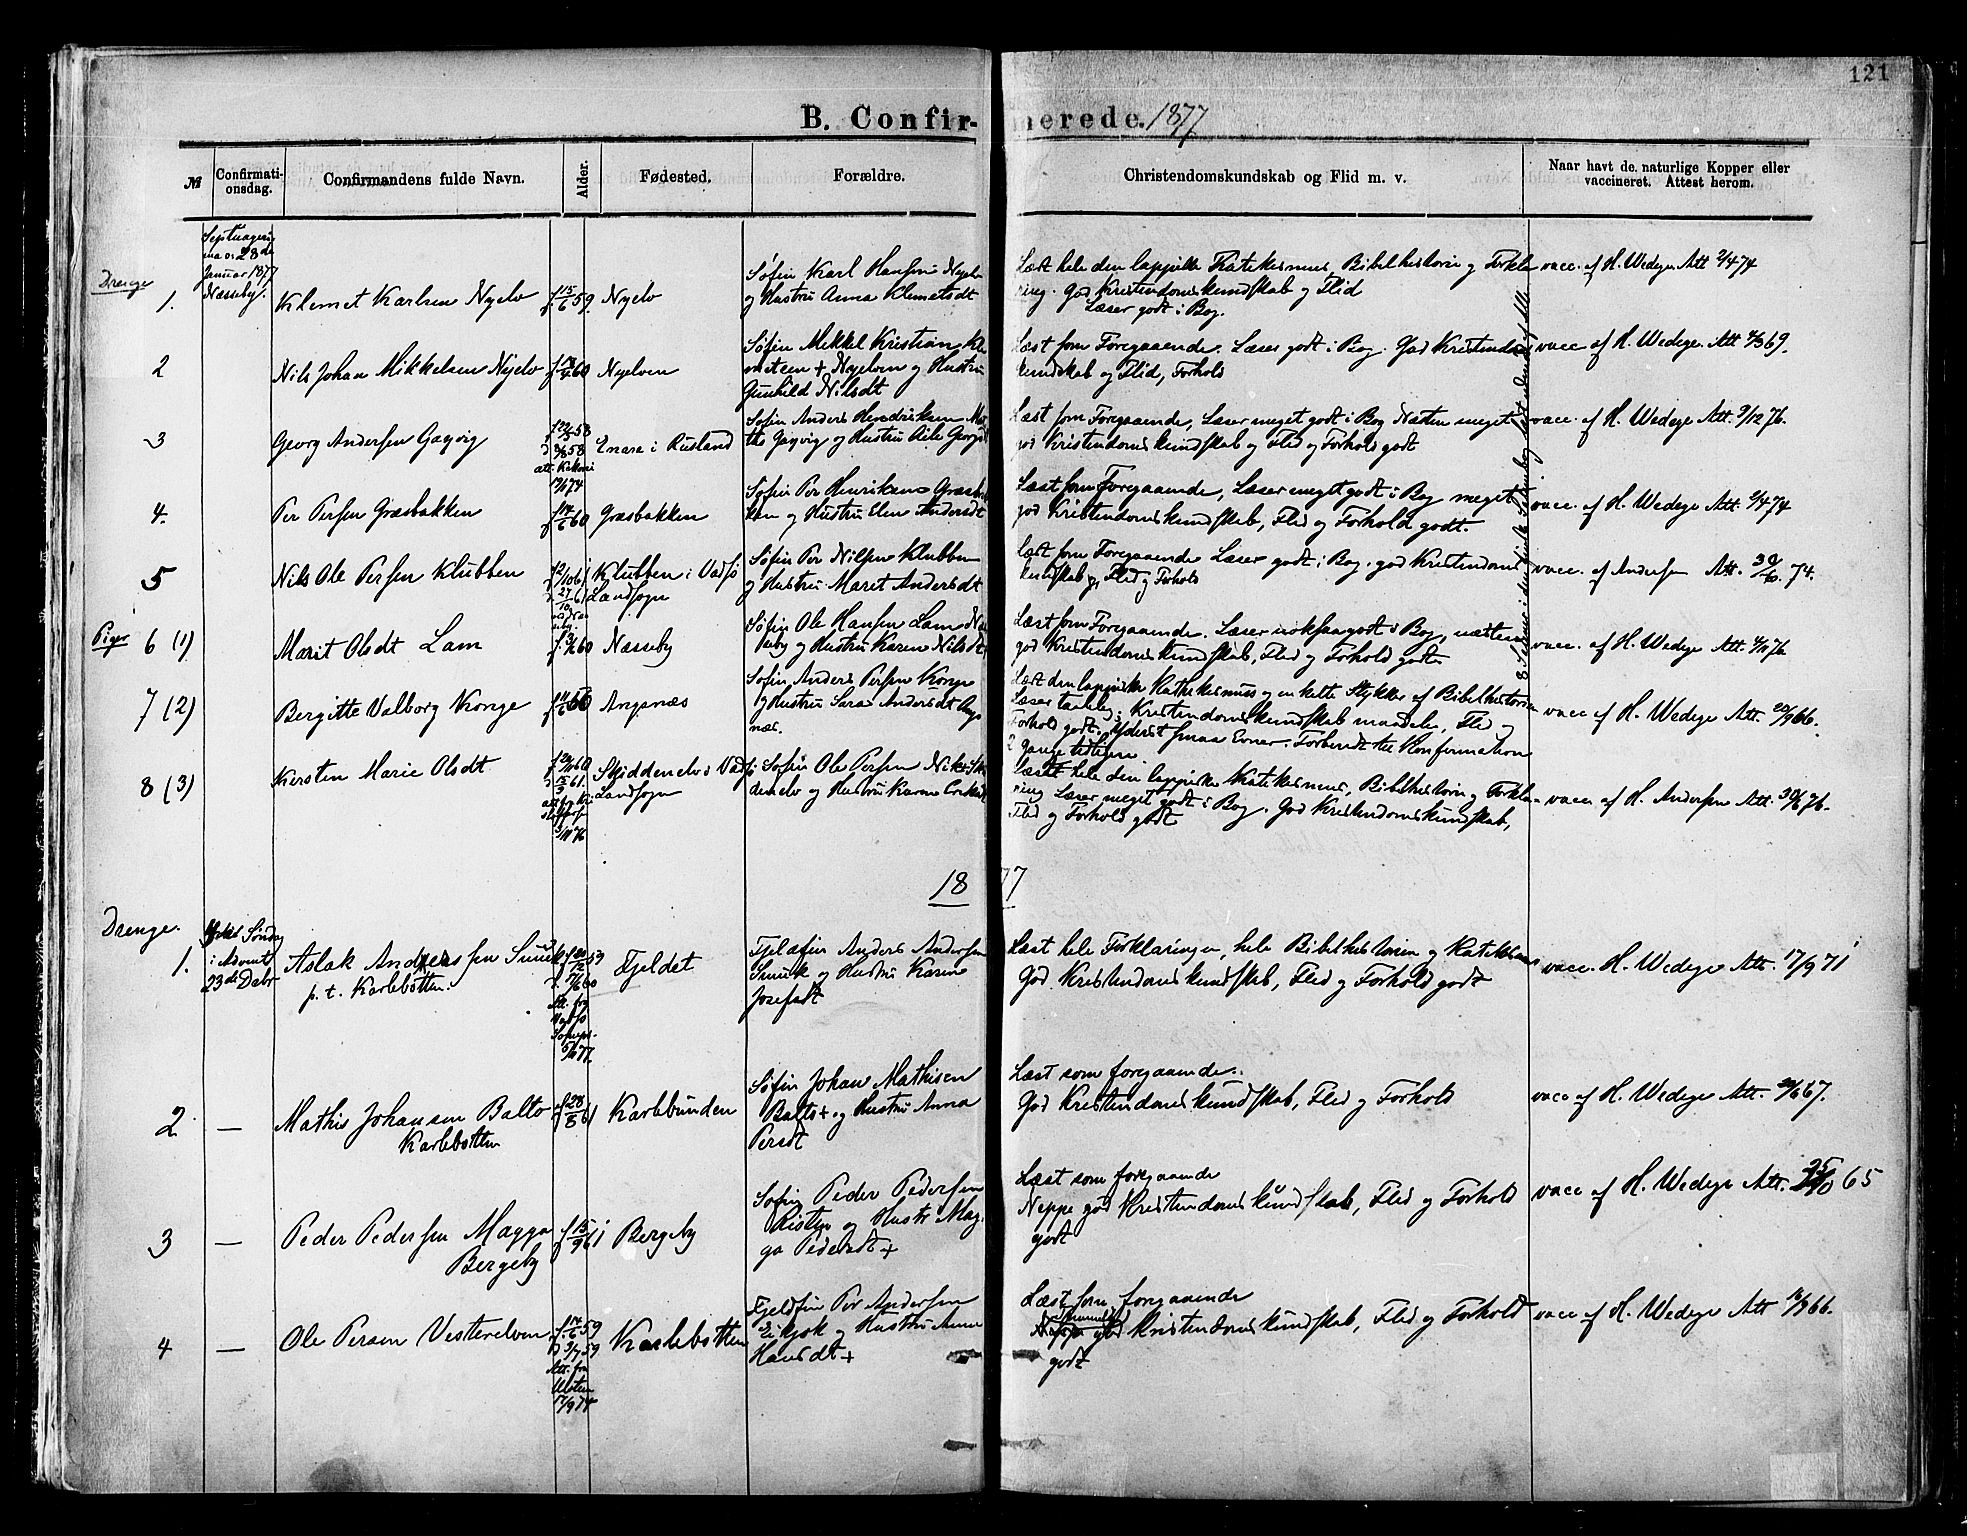 121
B. Confirmerede. 1877
№
Confirmationsdag.
Confirmandens fulde Navn.
Alder.
Fødested.
Forældre.
Christendomskundskab og Flid m. v.
Naar havt de naturlige Kopper eller vaccineret. Attest herom.
Drenge
1.
28de
Januar 1877
Næsseby.
Klemet Karlsen Nyelv
f. 15/6 59.
Nyelv
Søfin Karl Hansen Nyelv
og Hustru Anna Klemetsdt
Læst hele den lappiske Katekesmus, Bibelhistorie og Forkla
ring. God Kristendomskundskab og Flid
Læser godt i Bog.
vacc. af H. Wedege Att 2/4 74
2
Nils Johan Mikkelsen Nyelv
Nyelven
Søfin Mikkel Kristian Kle
metsen + Nyelven og Hustru
Gunhild Nilsdt
Læst som Foregaaende. Læser godt i Bog. God Kristendoms
kundskab og Flid, Forhold
vacc af H. Wedege. Att 4/3 69.
3
Georg Andersen Gagvig
Enare i Rusland
Søfin Anders Hendriksen
Gagvig og Hustru
Læst som Foregaaende, Læser meget godt i Bog Næsten meget
god Kristendomskundskab og Flid og Forhold godt
vacc. af H. Wedege Att. 9/12 76.
4.
Per Persen Græsbakken
f 14/6 60
Græsbakken
Søfin Per Henriksen Græsbak
ken og Hustru Elen Andersdt
Læst som Foregaaende, Læser meget godt i Bog meget
god Kristendomskundskab, Flid og Forhold godt.
vacc. af H. Wedege Att. 2/4 74
5
Nils Ole Persen Klubben
Klubben i Vadsø
Landsogn
Søfin Per Nilsen Klubben
og Hustru Maret Andersdt
Læst som Foregaaende Læser godt i Bog. god Kristendoms
kundskab, Flid og Forhold
vacc. af Andersen Att. 30/10. 74.
Piger 6 (1)
Marit Olsdt Lam
Næsseby
Søfin Ole Hansen Lam Næs
seby og Hustru Karen Nilsdt
Læst som Foregaaende. Læser noksaa godt i Bog, næsten
god Kristendomskundskab, Flid og Forhold godt
vacc. af H. Wedege Att.
7 (2)
Bergitte Valborg Konge
Angsnæs
Søfin Anders Persen Konge
og Hustru Sara Andersdt Angs
næs.
Læst den lappiske Kathekesmus og enkelte Stykker af Bibelhistorien
Kristendomskundskab maadelig, Flid og
Forhold godt. Yderst smaa Evner. Forberedt til Konfirmation
2 Gange tidligere.
vacc af H. Wedege Att. 20/9 66.
8 (3)
Kersten Marie Olsdt
Skiddenelv i Vadsø
Landsogn
Søfin Ole Persen
denelv og Hustru Karen
læst hele den lappiske Katekesmus, Bibelhistorie og Forkla-
ring Læser meget godt i Bog. God Kristendomskundskab,
Flid og Forhold godt
vacc. af H. Andersen Att. 30/6 76.
1877
Drenge.
1.
Søndag
i Advent
23de Decbr
Aslak Andersen Smuk
p. t. Karlebotten.
Fjeldet
Fjeldfin Anders Andersen
Smuk og Hustru Karen
Josefsdt
Læst hele Forklaringen, hele Bibelhistorien og Katekesmus
God Kristendomskundskab, Flid og Forhold godt
vacc. H. Wedege Att. 17/9 71
2
—
Mathis Johansen Balto
Karlebotten
f 28/5 61
Karlebunden
Søfin Johan Mathisen
Balto + og Hustru Anna
Persdt
Læst som foregaaende.
God Kristendomskundskab, Flid og Forhold
vacc af H. Wedege Att.
3
—
Peder Pedersen Magga
Bergeby
f 15/9 61
Bergeby
Søfin Peder Pedersen
og Hustru Mag
ga Pedersdt +
Læst som foregaaende
Neppe god Kristendomskundskab, Flid og Forhold
godt
vacc af H. Wedege Att. 25/10 65
4
—
Ole Persen Vesterelven
f. 14/6 59
Att. fra
Karlebotten
Fjeldfin Per Andersen
og Hustru Anne
Hansdt +
Læst som foregaaende
god Kristendomskundskab, Flid og Forhold
godt
vacc af H. Wedege Att